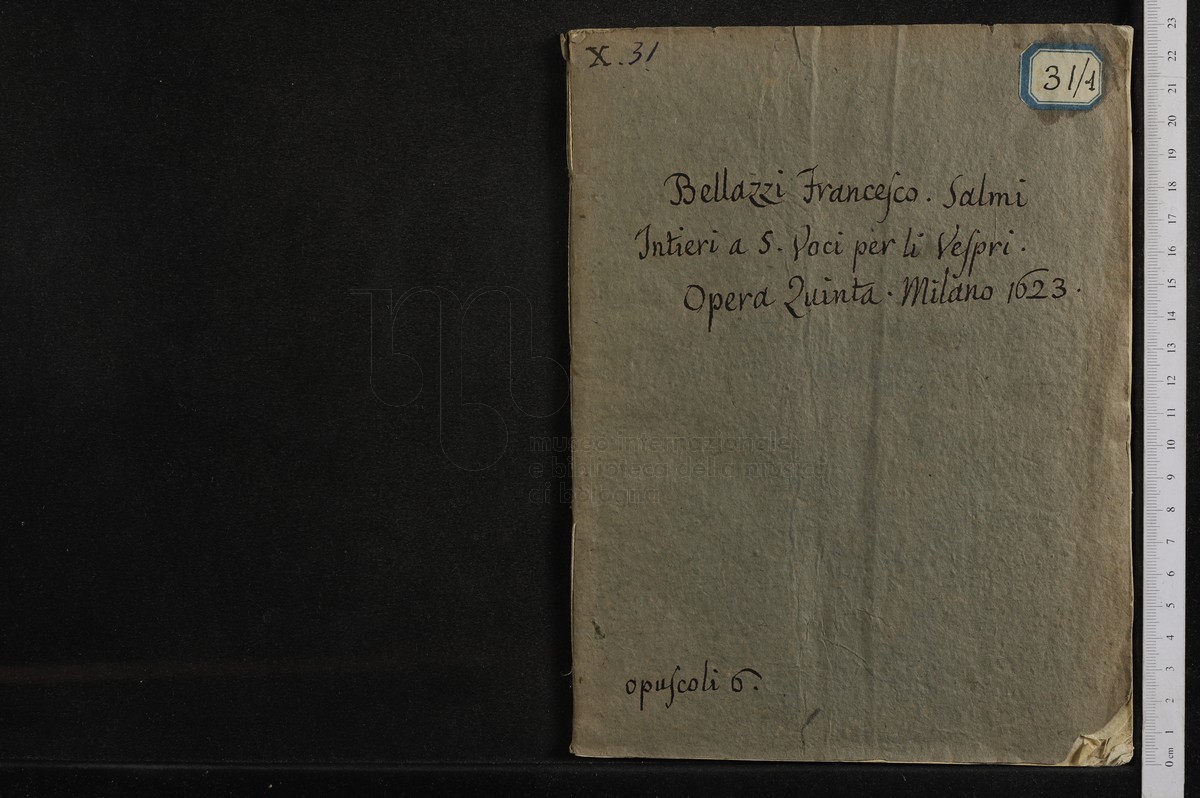 X. 31
31/1
Bellazzi Franceſco. Salmi
Intieri a 5. Voci per li Veſpri.
Opera Quinta. Milano 1623.
museo internazionale
e biblioteca della musica
di bologna
opuſcoli 6.
23
22
21
20
19
18
17
16
15
14
13
12
11
10
9
8
7
6
5
4
3
2
1
0 cm